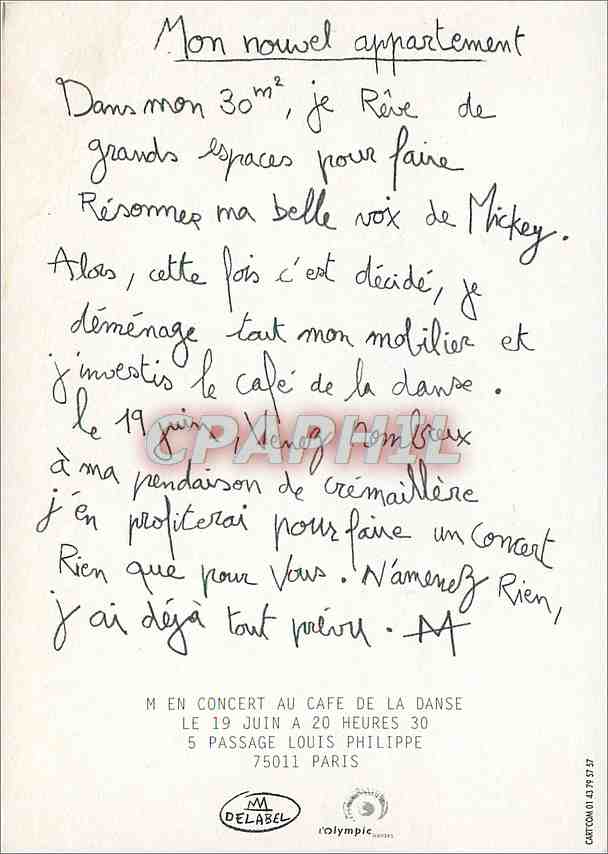 Mon nouvel appartement
Dans mon 30 m², je Rêve de
grands espaces pour faire
Résonner ma belle voix de Mickey.
Alors, cette fois c'est décidé, je
déménage tout mon mobilier et
j'investis le café de la danse.
le 19 juin, Venez nombreux
CPAPHIL
à ma pendaison de crémaillère
j'en profiterai pour faire un Concert
Rien que pour Vous. N'amenez Rien,
j'ai déjà tout prévu. M
M EN CONCERT AU CAFE DE LA DANSE
LE 19 JUIN A 20 HEURES 30
5 PASSAGE LOUIS PHILIPPE
75011 PARIS
DELABEL
l'Olympic NANTES
CART'COM 01 43 79 57 57